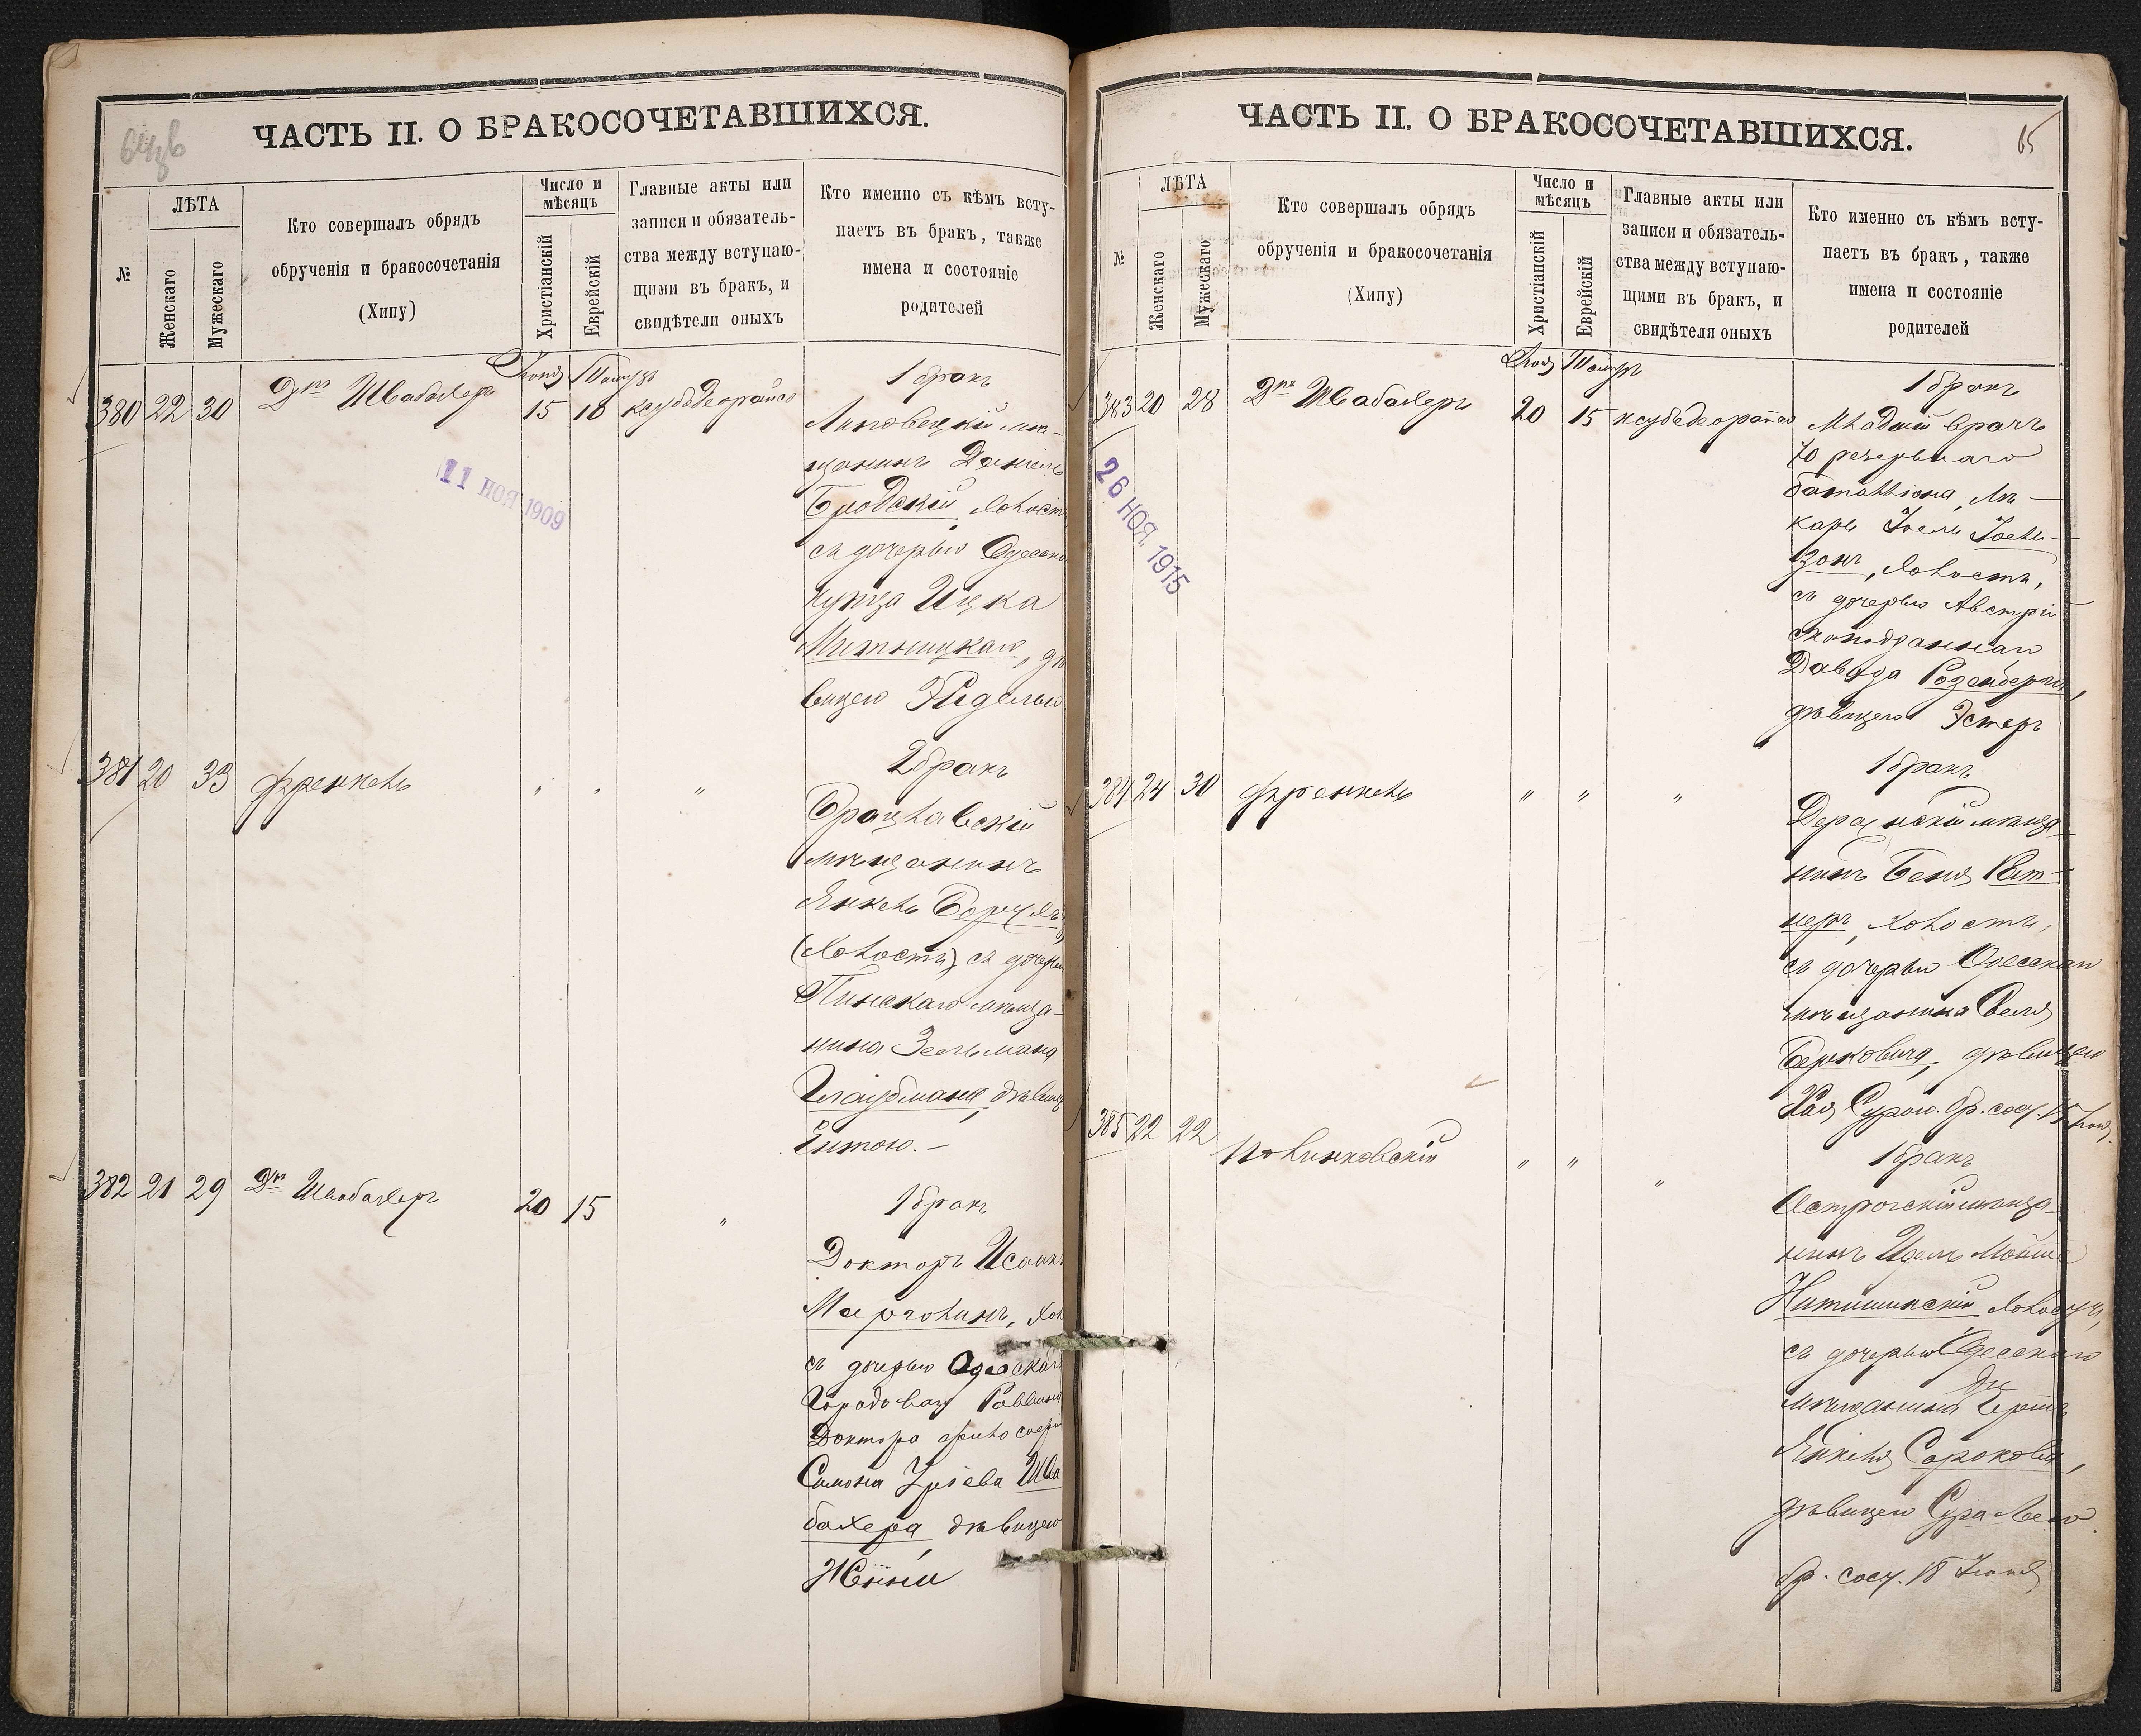 64об
ЧАСТЬ II. О БРАКОСОЧЕТАВШИХСЯ.
№
ЛѢТА
Женскаго
Мужескаго
Кто совершалъ обрядъ
обрученія и бракосочетанія
(Хипу)
Число и
мѣсяцъ
Христіанскій
Еврейскій
Главные акты или
записи и обязатель-
ства между вступаю-
щими въ бракъ, и
свидѣтели оныхъ
Кто именно съ кѣмъ всту-
паетъ въ бракъ, также
имена и состояніе
родителей
Іюня Тамузъ
380 22 30 Д-ръ Швабахеръ 15 10 ксубадеорайсо
1 бракъ
Липовецкій мѣ-
щанинъ Даніель
Бродскій, холостъ
съ дочерью Одесскаго
купца Ицка
Митницкаго, дѣ
вицею Эйделью
11 НОЯ 1909
381 20 33 Френкель " " "
2 бракъ
Брацлавскій
мѣщанинъ
Янкель
(холостъ) съ дочерью
Пинскаго мѣща-
нина Зельмана
дѣвиц
Гитою.-
382 21 29 Д-ръ Швабахеръ 20 15 "
1 бракъ
Докторъ Исаакъ
Марголинъ, хол
съ дочерью Одесскаго
Городоваго Раввина
Доктора философіи
Симона Аріева Шва
бахера, дѣвицею
Женни
65
ЧАСТЬ II. О БРАКОСОЧЕТАВШИХСЯ.
№
ЛѢТА
Женскаго
Мужескаго
Кто совершалъ обрядъ
обрученія и бракосочетанія
(Хипу)
Число и
мѣсяцъ
Христіанскій
Еврейскій
Главные акты или
записи и обязатель-
ства между вступаю-
щими въ бракъ, и
свидѣтеля оныхъ
Кто именно съ кѣмъ всту-
паетъ въ бракъ, также
имена и состояніе
родителей
Іюня Тамузъ
383 20 28 Д-ръ Швабахеръ 20 15 ксубадеорайсо
1 бракъ
Младшій врачъ
70 резервнаго
баталіона, Лѣ-
карь Іоель Іоель-
зонъ, холостъ,
съ дочерью Австрій
скоподданнаго
Давида Розенберга,
дѣвицею Эстеръ
26 НОЯ. 1915
384 24 30 Френкель " " "
1 бракъ
мѣща-
нинъ Беня Кит-
неръ, холостъ,
съ дочерью Одесскаго
мѣщанина
Берковича, дѣвицею
Хая Сурою. бр. сос. 15 Іюня.
385 22 22 Полинковскій " " "
1 бракъ
Острогскій мѣща-
нинъ Идель Мойше
Нитишинскій холостъ,
съ дочерью Одесскаго
мѣщанина
Янкеля Сорокова,
дѣвицею Сура Леею
бр. сос. 18 Іюня